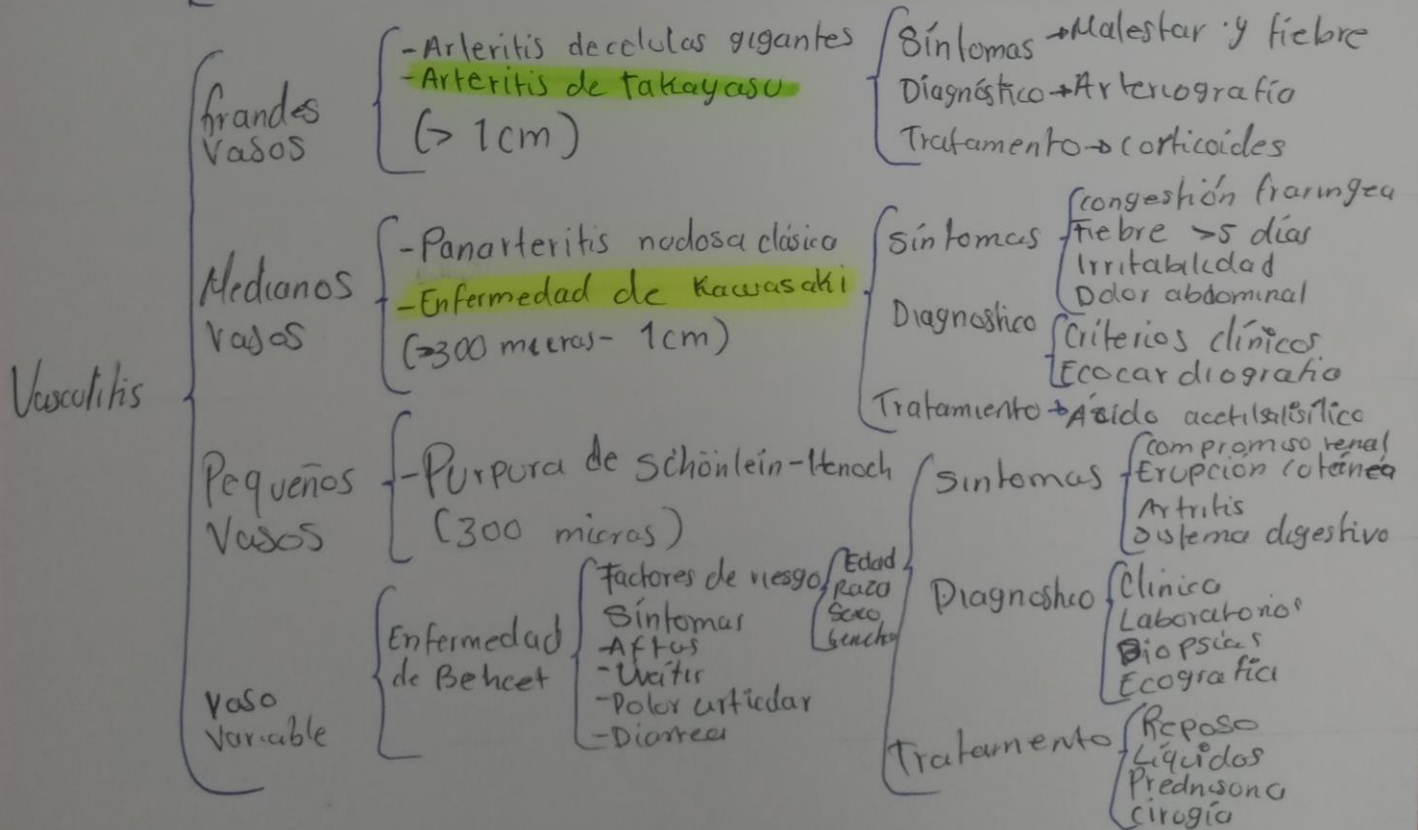 Vasculitis
Grandes
Vasos
-Arteritis de celulas gigantes
-Arteritis de takayasu
(> 1cm)
Síntomas →Malestar y fiebre
Diagnóstico→Arteriografía
Tratamento→corticoides
Medianos
Vasos
-Panarteritis nodosa clásica
-Enfermedad de Kawasaki
(>300 micras- 1cm)
Síntomas
congestión fraringea
Fiebre >5 días
Irritabilidad
Dolor abdominal
Diagnostico
Criterios clínicos
Ecocardiografia
Tratamiento→Ácido acetilsalisílico
Pequeños
Vasos
-Purpura de Schönlein-Henoch
(300 micras)
Sintomas
compromiso renal
Erupcion cotánea
Artritis
Sistema digestivo
Diagnostico
Clinico
Laboratorios
Biopsias
Ecografia
Tratamento
Reposo
Líquidos
Prednisona
cirugía
Vaso
Variable
Enfermedad
de Behcet
Factores de riesgo
Edad
Raza
Sexo
Síntomas
-Aftas
-Uveitis
-Dolor articular
-Diarrea